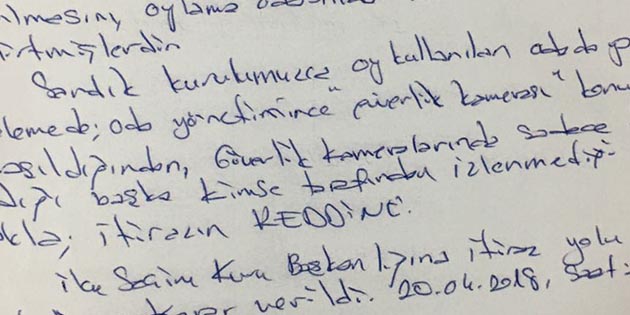 ilmesini, oylama
irtmişlerdir
Sandık kurulumuzca oy kullanılan odada
lemede; oda yönetimince "güvenlik kamerası" konu
asıldığından, Güvenlik kameralarında sadece
dığı başka kimse tarafından izlenmediği
kla; itirazın REDDİNE.
ilçe Seçim Kuru Başkanlığına itiraz yolu
karar verildi. 20.04.2018, Saat: